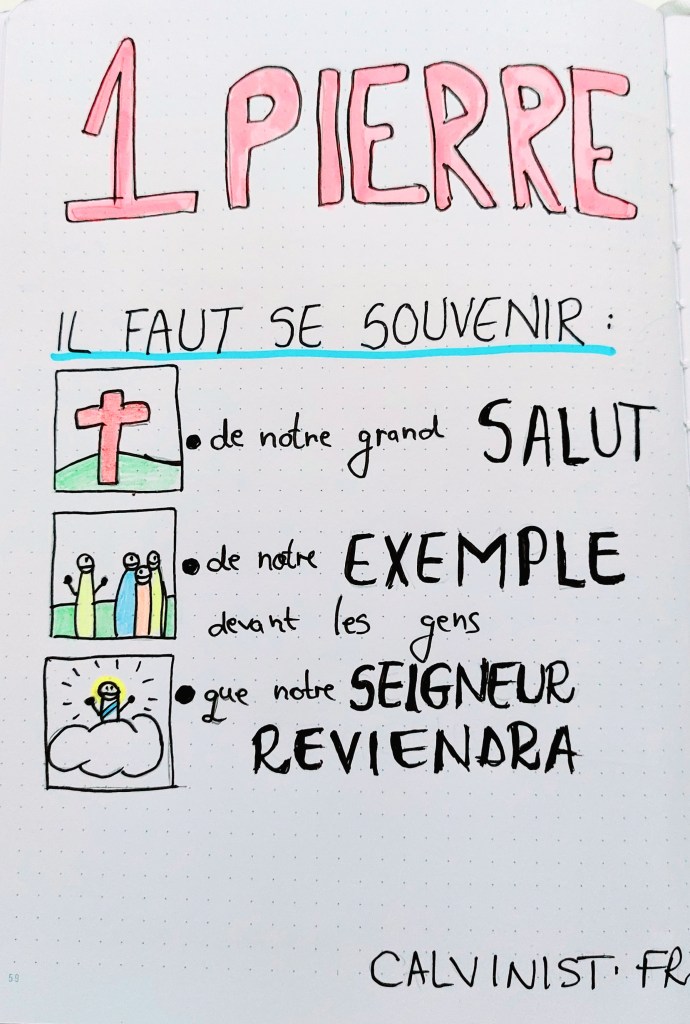 1 PIERRE
IL FAUT SE SOUVENIR :
• de notre grand SALUT
• de notre EXEMPLE
devant les gens
• que notre SEIGNEUR
REVIENDRA
CALVINIST.FR
59